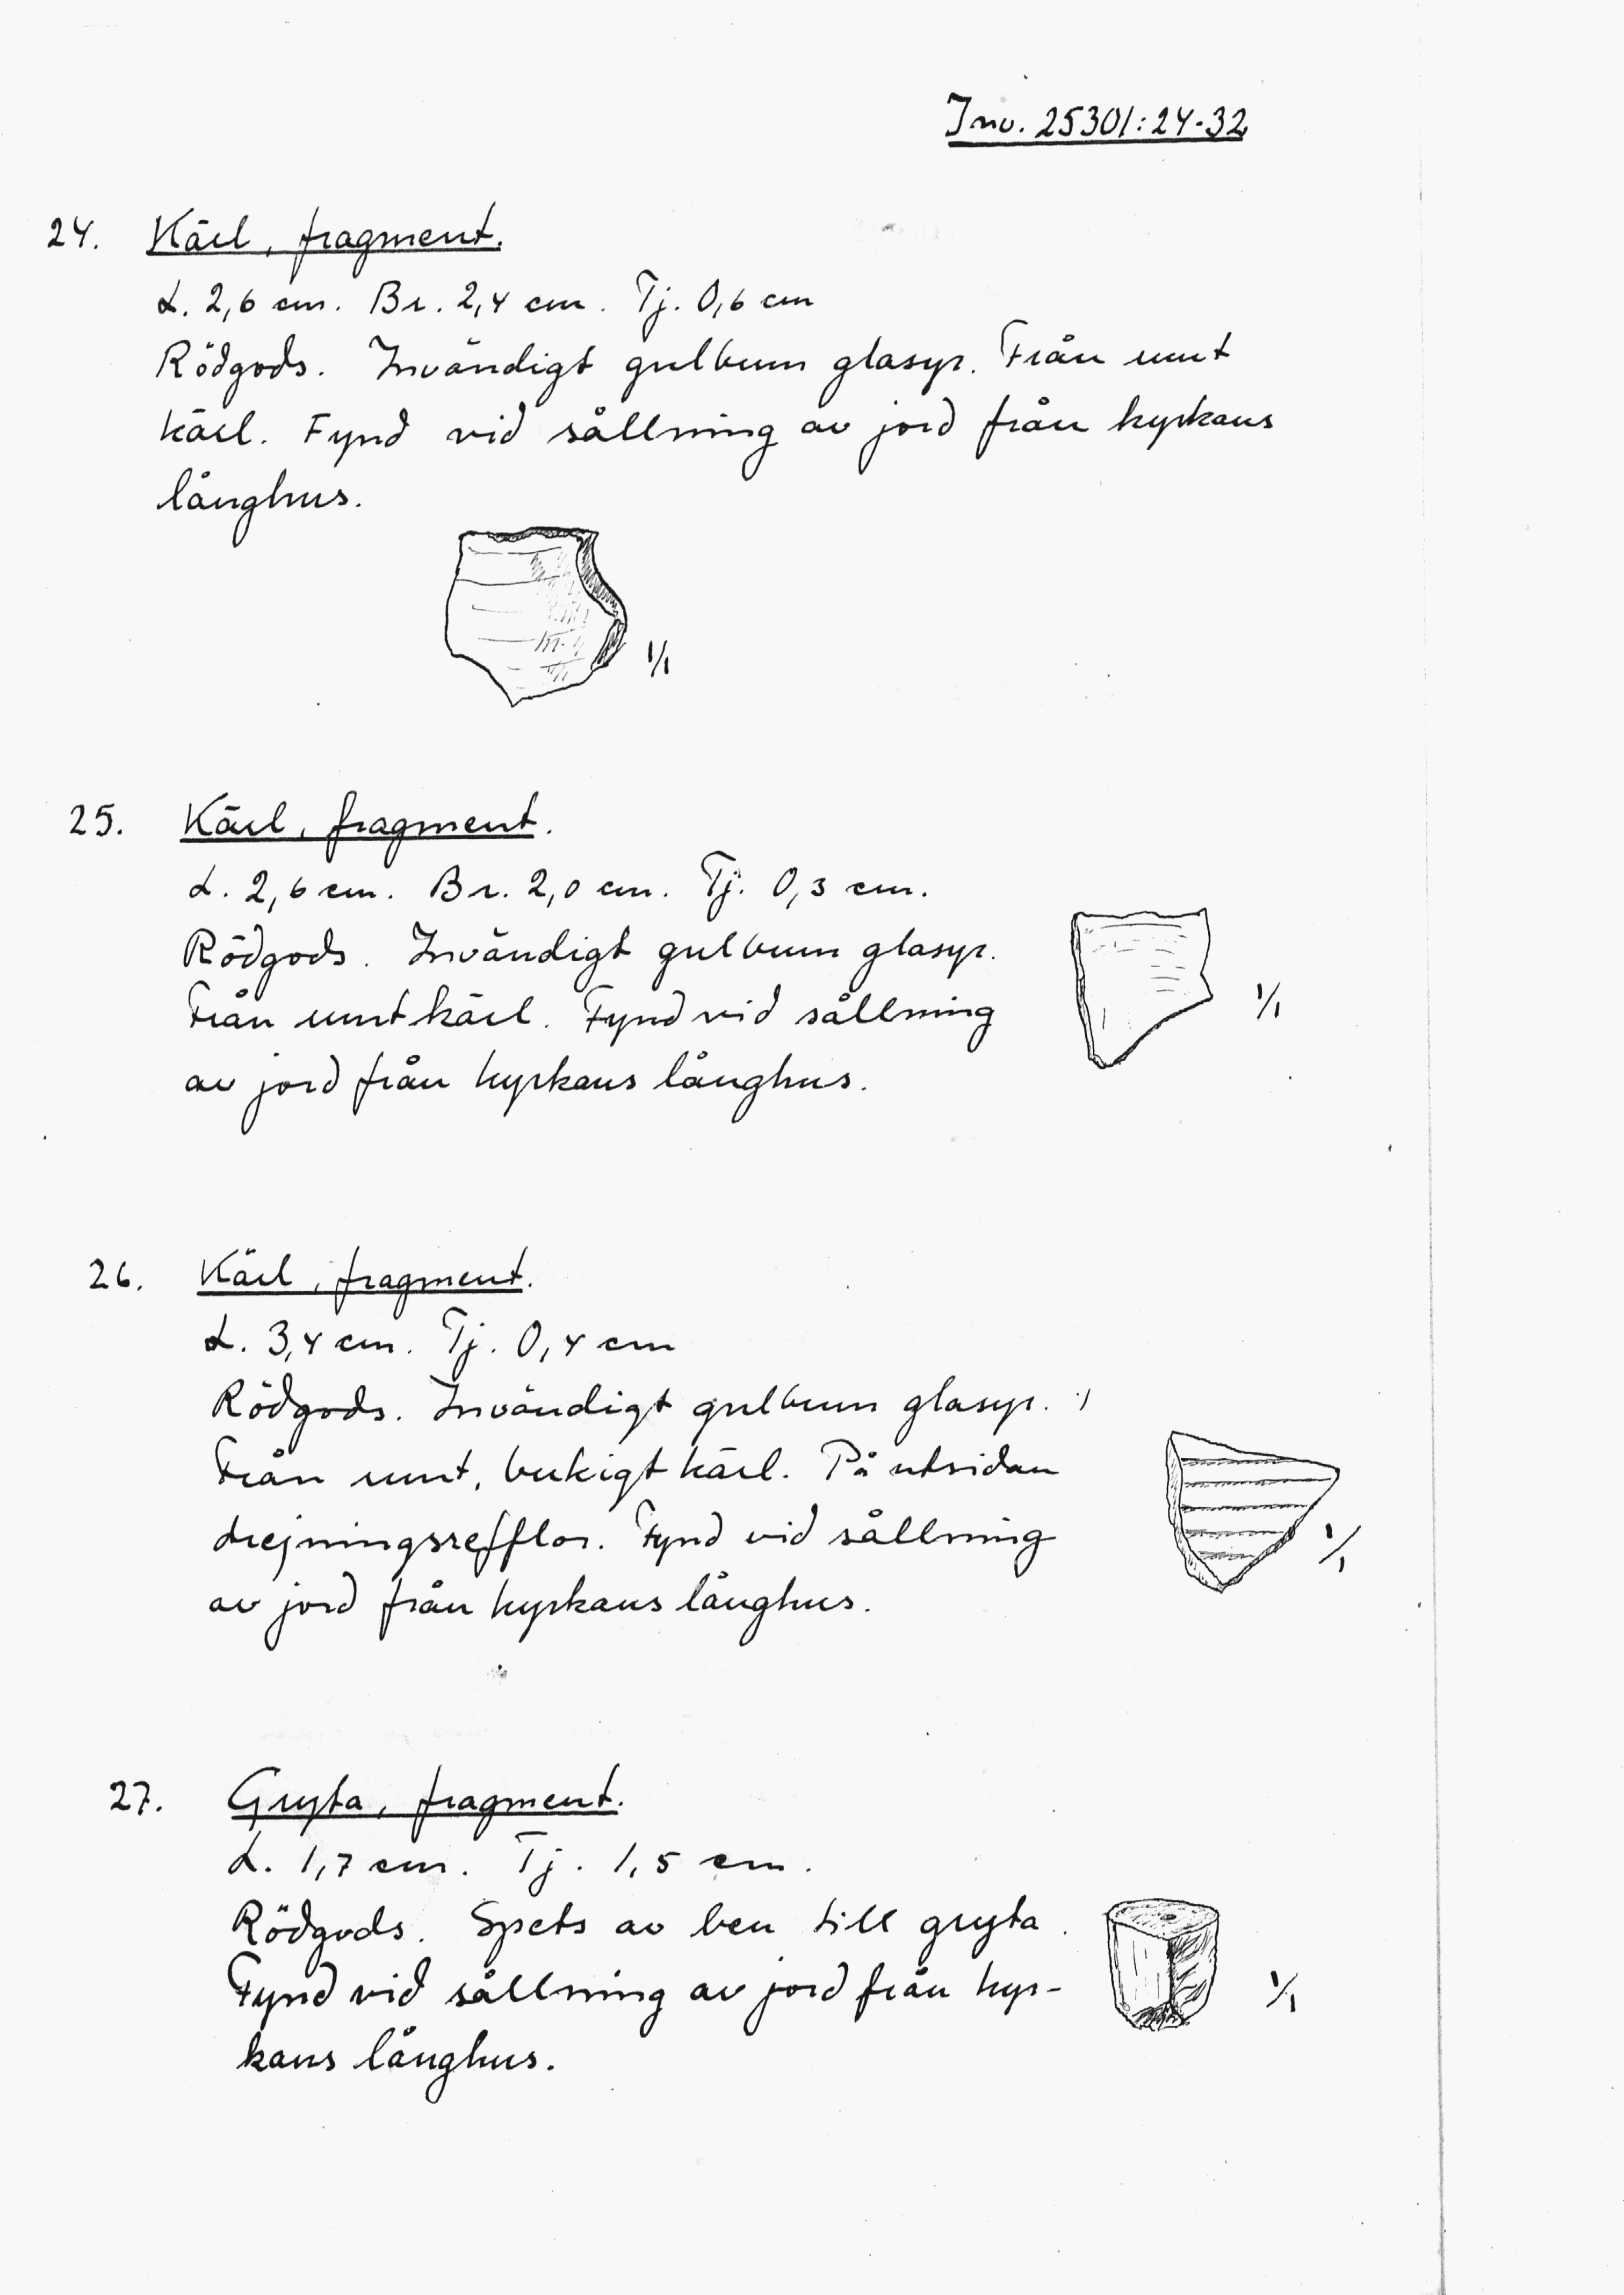 Inv. 25301:24-32
24. Kärl, fragment.
L. 2,6 cm. Br. 2,4 cm. Tj. 0,6 cm
Rödgods. Invändigt gulbrun glasyr. Från runt
kärl. Fynd vid sållning av jord från kyrkans
långhus.
1/1
25. Kärl, fragment.
L. 2,6 cm. Br. 2,0 cm. Tj. 0,3 cm.
Rödgods. Invändigt gulbrun glasyr.
Från runt kärl. Fynd vid sållning
av jord från kyrkans långhus.
1/1
26. Kärl, fragment.
L. 3,4 cm. Tj. 0,4 cm
Rödgods. Invändigt gulbrun glasyr.
Från runt, bukigt kärl. På utsidan
drejningsrefflor. Fynd vid sållning
av jord från kyrkans långhus.
1/1
27. Gryta, fragment.
L. 1,7 cm. Tj. 1,5 cm.
Rödgods. Spets av ben till gryta.
Fynd vid sållning av jord från kyr-
kans långhus.
1/1